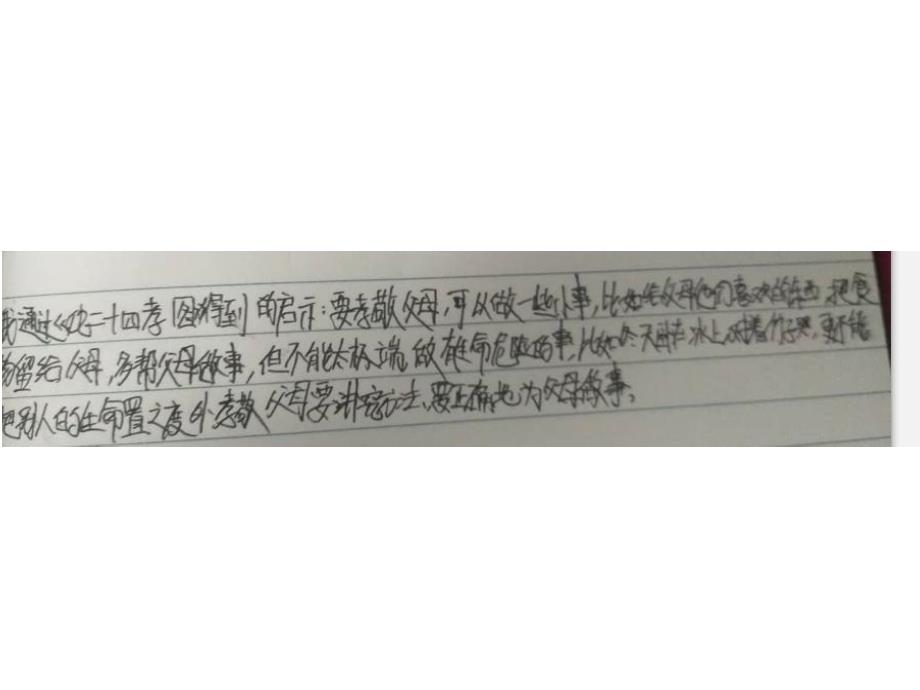 我通过《二十四孝图》得到的启示:要孝敬父母,可以做一些小事,比如给父母他们喜欢的东西,把食
物留给父母,多帮父母做事,但不能太极端,做有生命危险的事,比如冬天卧在冰上,哭,更不能
把别人的生命置之度外,孝敬父母要讲方法,要正确地为父母做事。